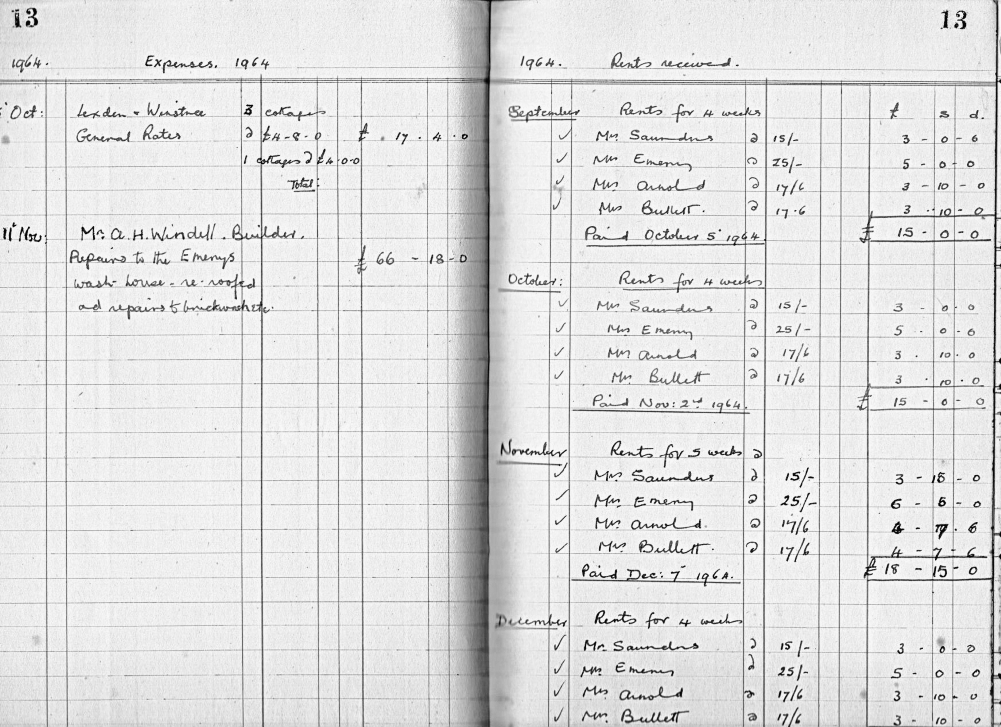 13
1964. Expenses. 1964
Oct: Lexden & Winstree 3 cottages
General Rates @ £4-8-0 £ 17.4.0
1 cottages @ £4.0.0
Total:
11th Nov: Mr A.H. Windell. Builder.
Repairs to the Emerys £ 66-18-0
wash-house - re-roofed
and repairs to brickwork etc.
13
1964. Rents received.
September Rents for 4 weeks £ s d.
✓ Mrs Saunders @ 15/- 3-0-0
✓ Mrs Emery @ 25/- 5-0-0
✓ Mrs Arnold @ 17/6 3-10-0
✓ Mrs Bullett. @ 17.6 3.10-0
Paid October 5th 1964. £ 15-0-0
October: Rents for 4 weeks
✓ Mrs Saunders @ 15/- 3-0-0
✓ Mrs Emery @ 25/- 5-0-0
✓ Mrs Arnold @ 17/6 3.10.0
✓ Mrs Bullett @ 17/6 3.10.0
Paid Nov: 2nd 1964. £ 15-0-0
November Rents for 5 weeks @
✓ Mrs Saunders @ 15/- 3-15-0
✓ Mrs Emery @ 25/- 6-5-0
✓ Mrs Arnold. @ 17/6 4-7.6
✓ Mrs Bullett. @ 17/6 4-7-6
Paid Dec: 7th 1964. £ 18-15-0
December Rents for 4 weeks
✓ Mrs Saunders @ 15/- 3-0-0
✓ Mrs Emery @ 25/- 5-0-0
✓ Mrs Arnold @ 17/6 3-10-0
✓ Mrs Bullett @ 17/6 3-10-0